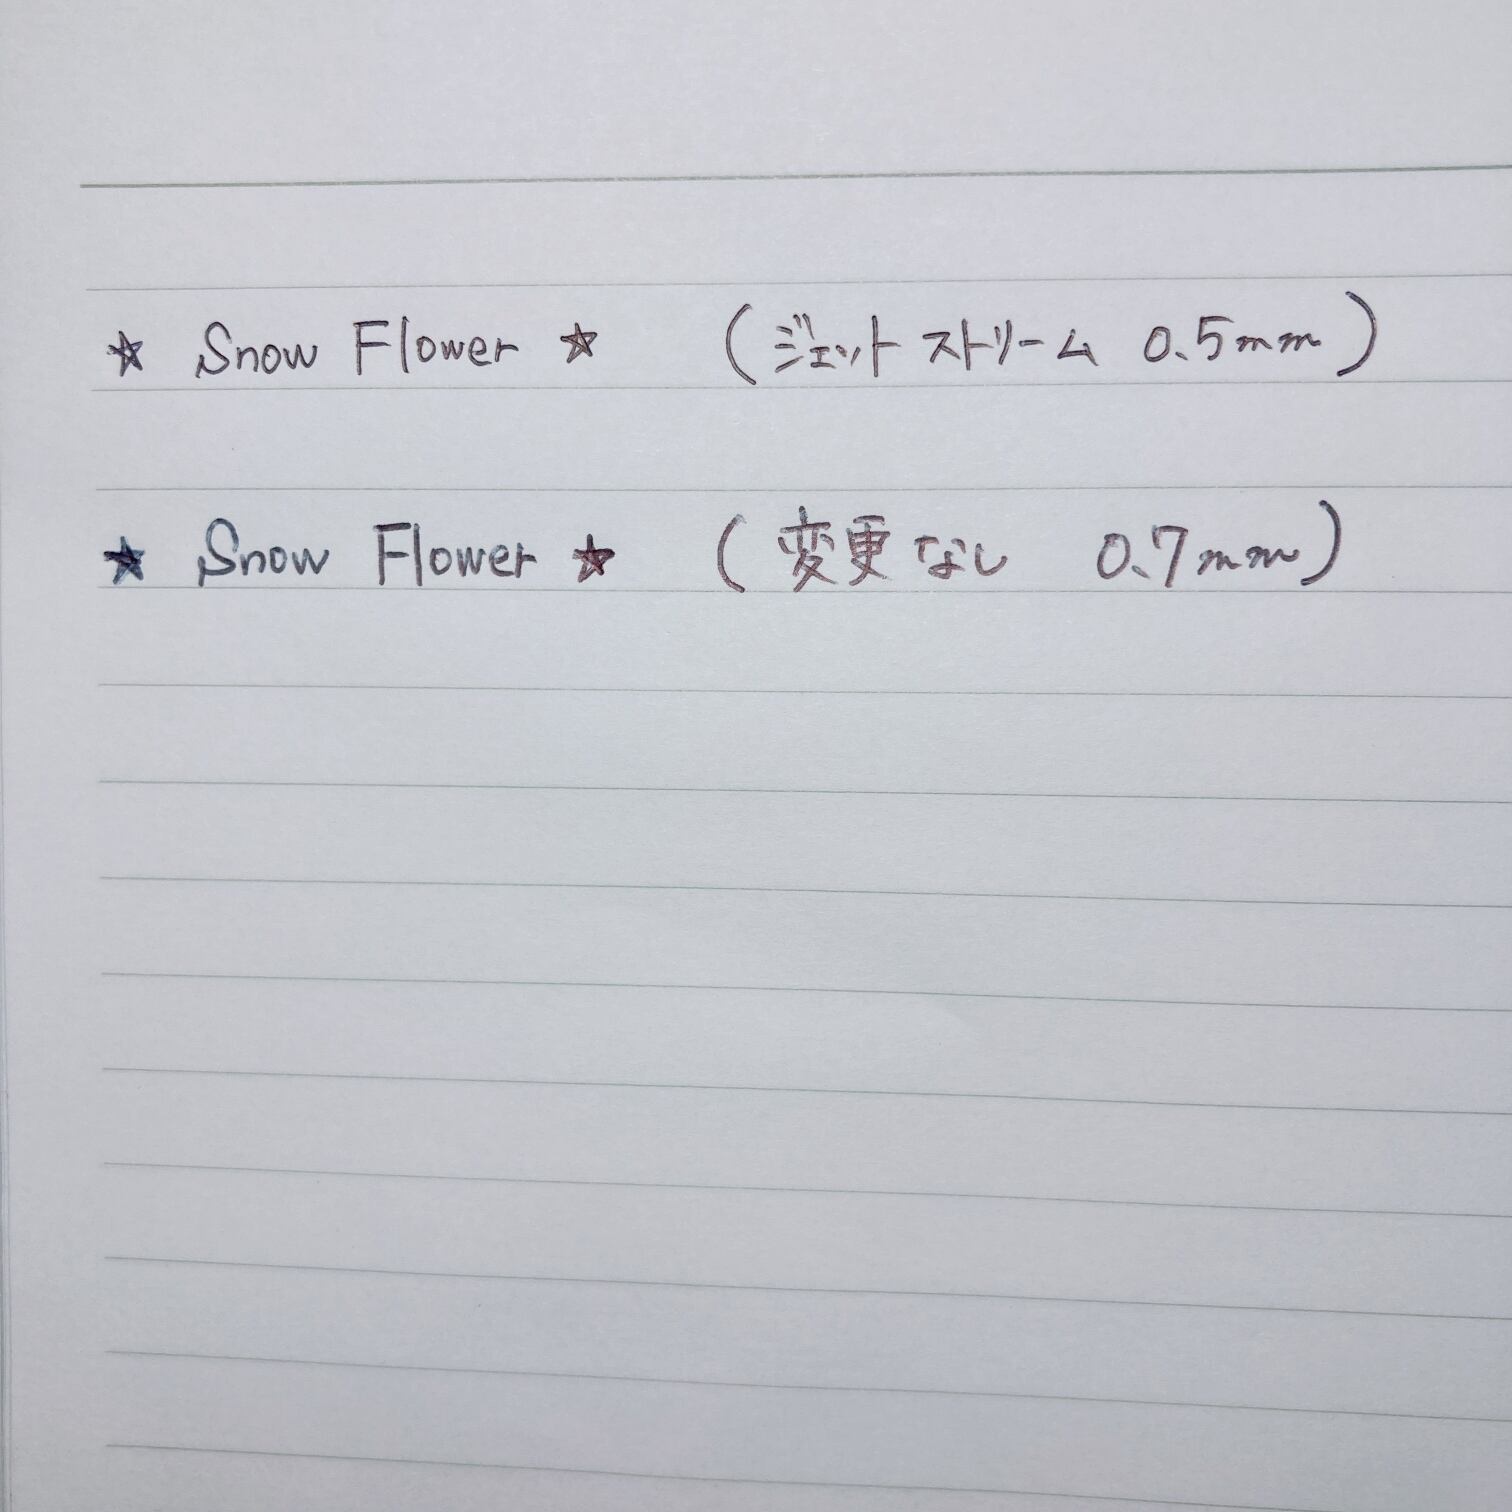 ☆ Snow Flower ☆ (ジェットストリーム 0.5mm)
★ Snow Flower ★ (変更なし 0.7mm)